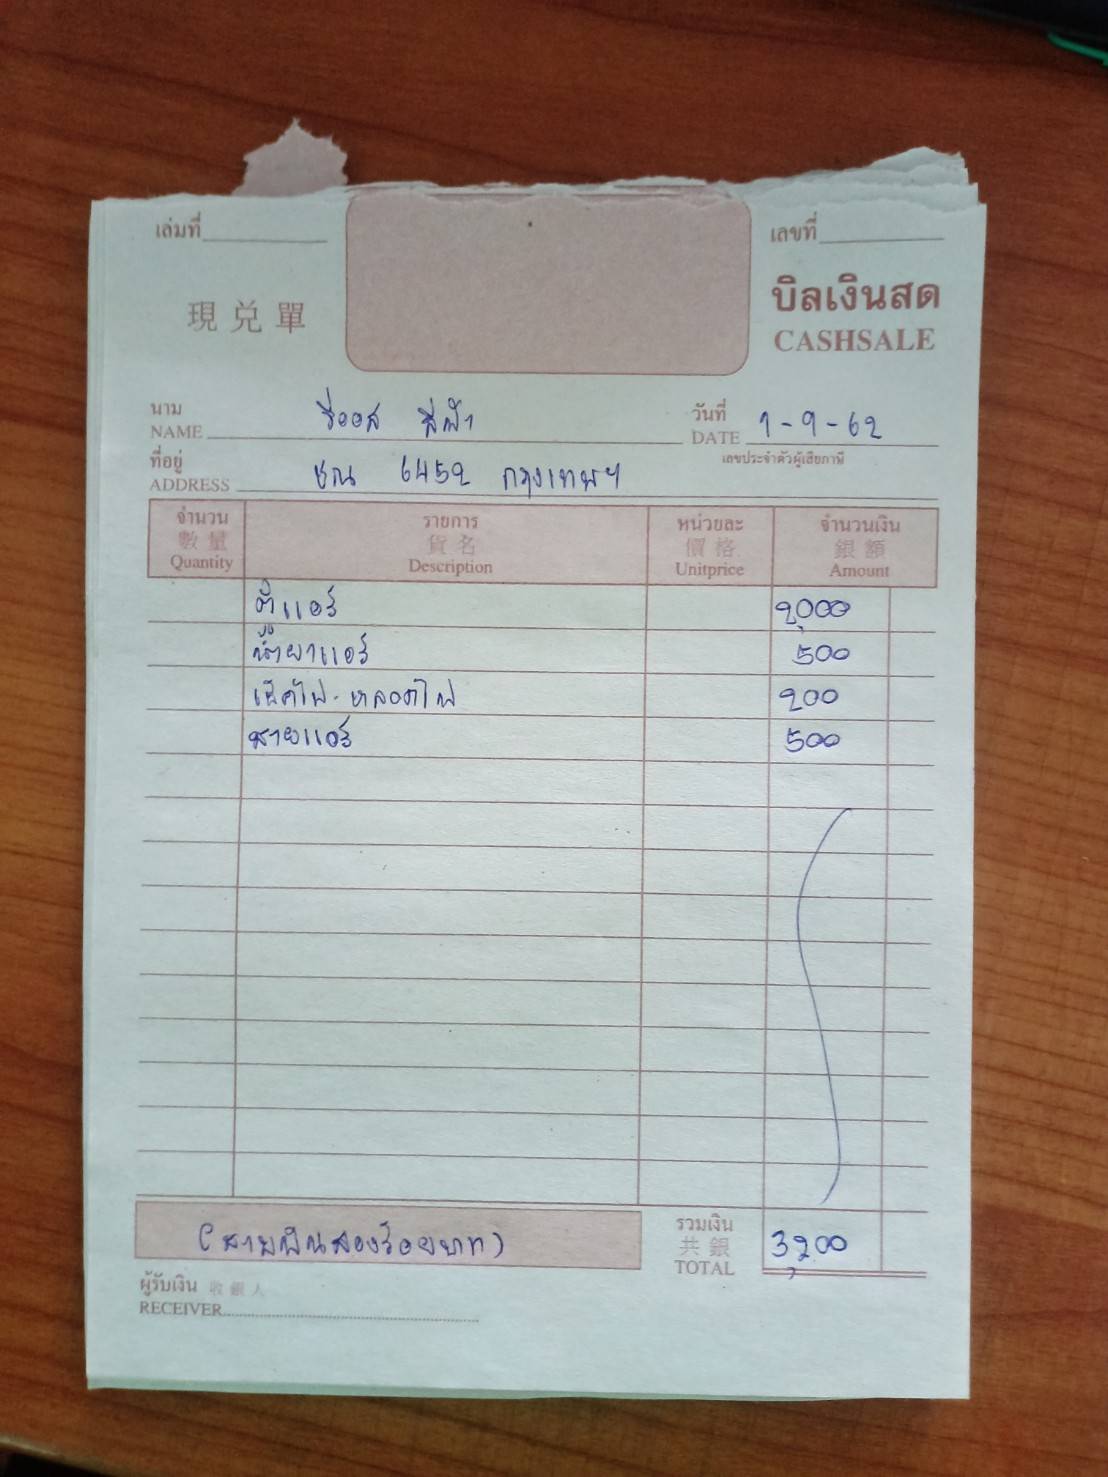 เล่มที่
เลขที่
現兑單
บิลเงินสด
CASHSALE
นาม
NAME วีออส สีฟ้า
วันที่
DATE 1-9-62
ที่อยู่
ADDRESS ชณ 6452 กรุงเทพฯ
เลขประจำตัวผู้เสียภาษี
จำนวน รายการ หน่วยละ จำนวนเงิน
數量 貨名 價格 銀額
Quantity Description Unitprice Amount
ตู้แอร์ 2,000
น้ำยาแอร์ 500
เช็คไฟ-หลอดไฟ 200
สายแอร์ 500
(สามพันสองร้อยบาท)
รวมเงิน
共銀
TOTAL 3,200
ผู้รับเงิน 收銀人
RECEIVER